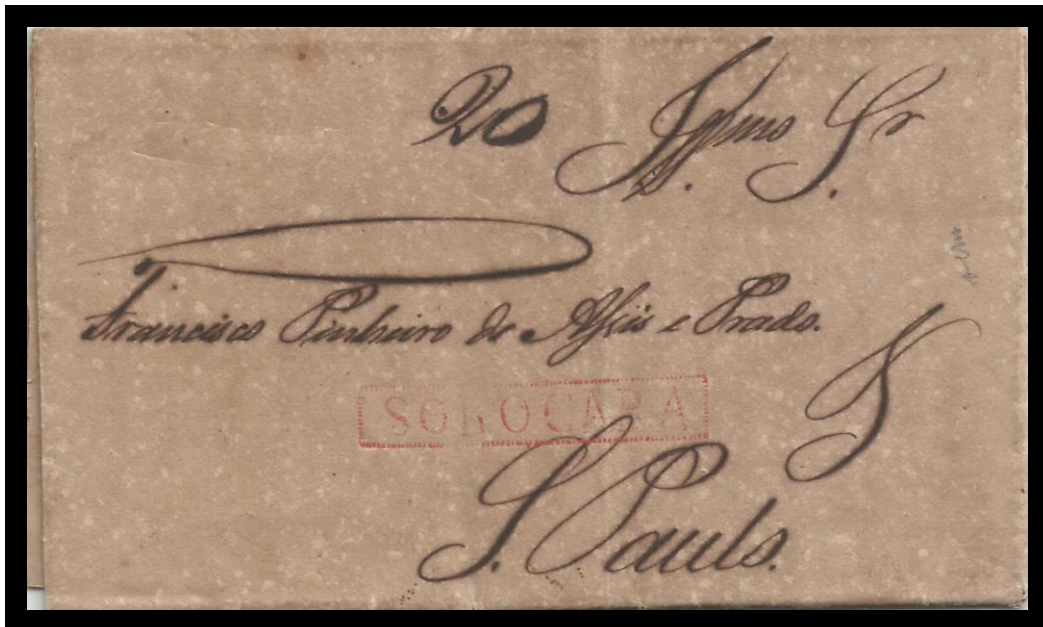 20 Illmo Sr
Francisco Pinheiro de Assis e Prado.
SOROCABA
S. Paulo.